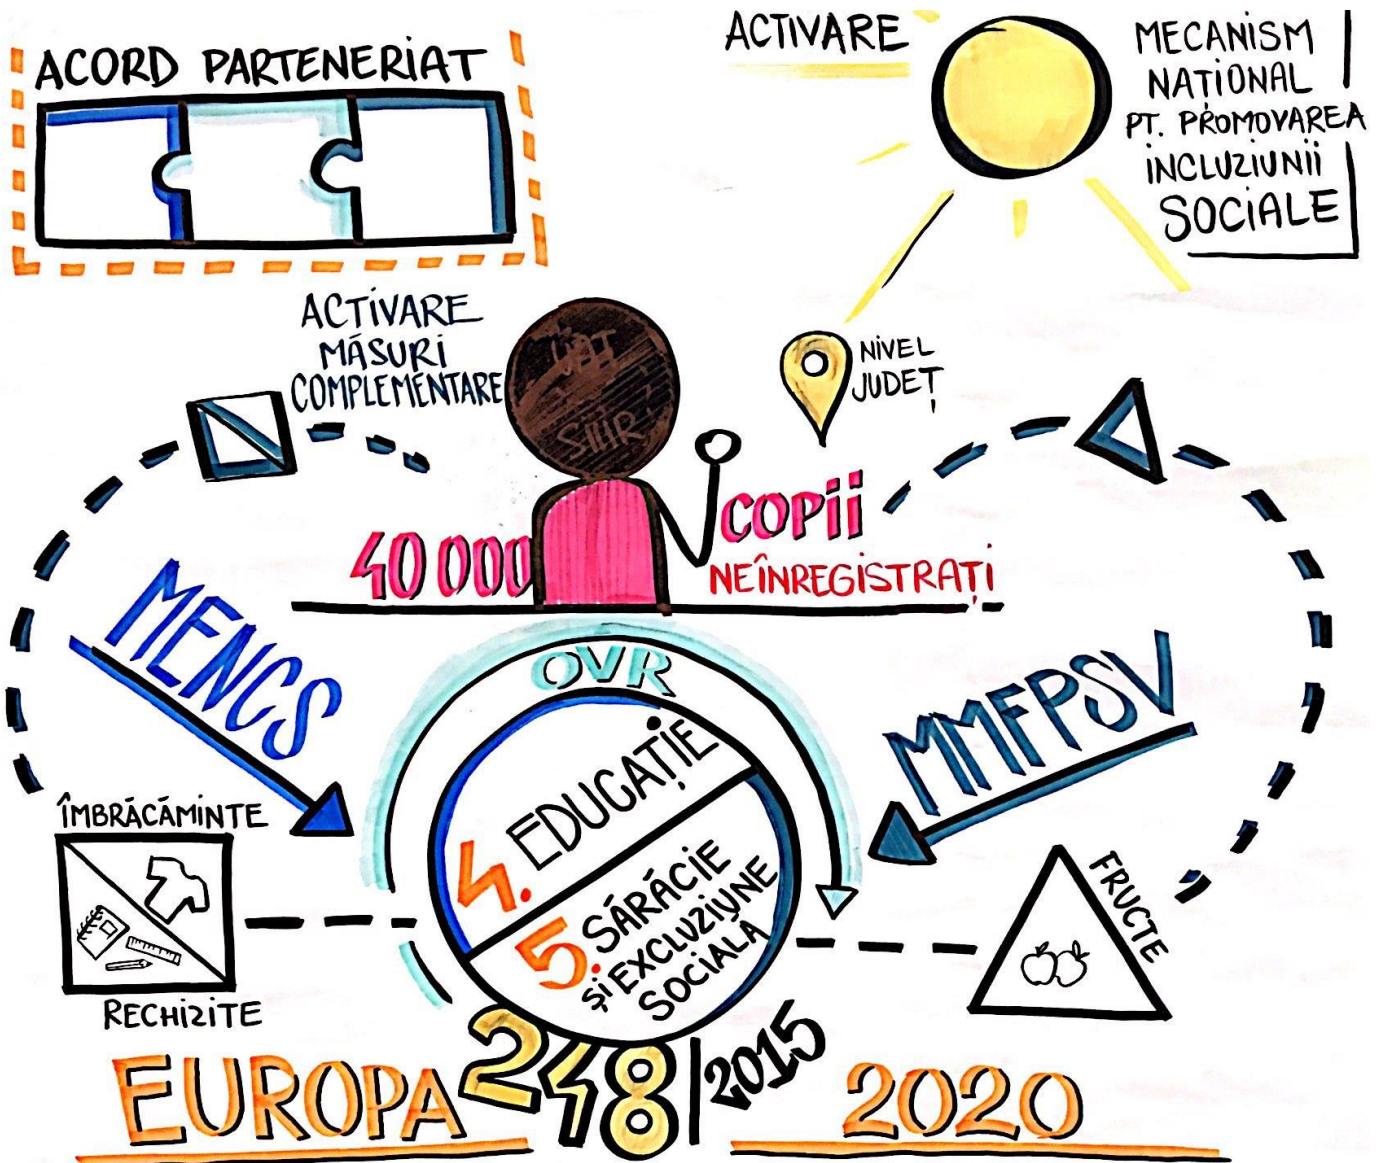 ACORD PARTENERIAT
ACTIVARE
MECANISM
NAȚIONAL
PT. PROMOVAREA
INCLUZIUNII
SOCIALE
ACTIVARE
MĂSURI
COMPLEMENTARE
SIIIR
NIVEL
JUDEȚ
40 000
COPII
NEÎNREGISTRAȚI
MENCS
OVR
MMFPSV
4. EDUCAȚIE
5. SĂRĂCIE
ȘI EXCLUZIUNE
SOCIALĂ
ÎMBRĂCĂMINTE
RECHIZITE
FRUCTE
EUROPA
248/2015
2020